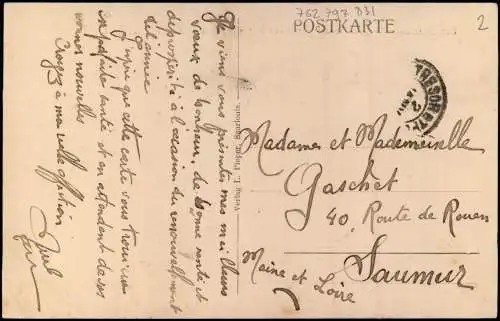 762 797 D31
POSTKARTE
2
TRESOR ET
2
Je viens vous présenter mes meilleurs
vœux de bonheur, de bonne santé et
de prospérité à l'occasion du renouvellement
de l'année
J'espère que cette carte vous trouvera
en parfaite santé et en attendant de vos
bonnes nouvelles
Croyez à ma vieille affection
Verlag L.
Mesdames et Mademoiselle
Gaschet
40, Route de Rouen
Saumur
Maine et Loire